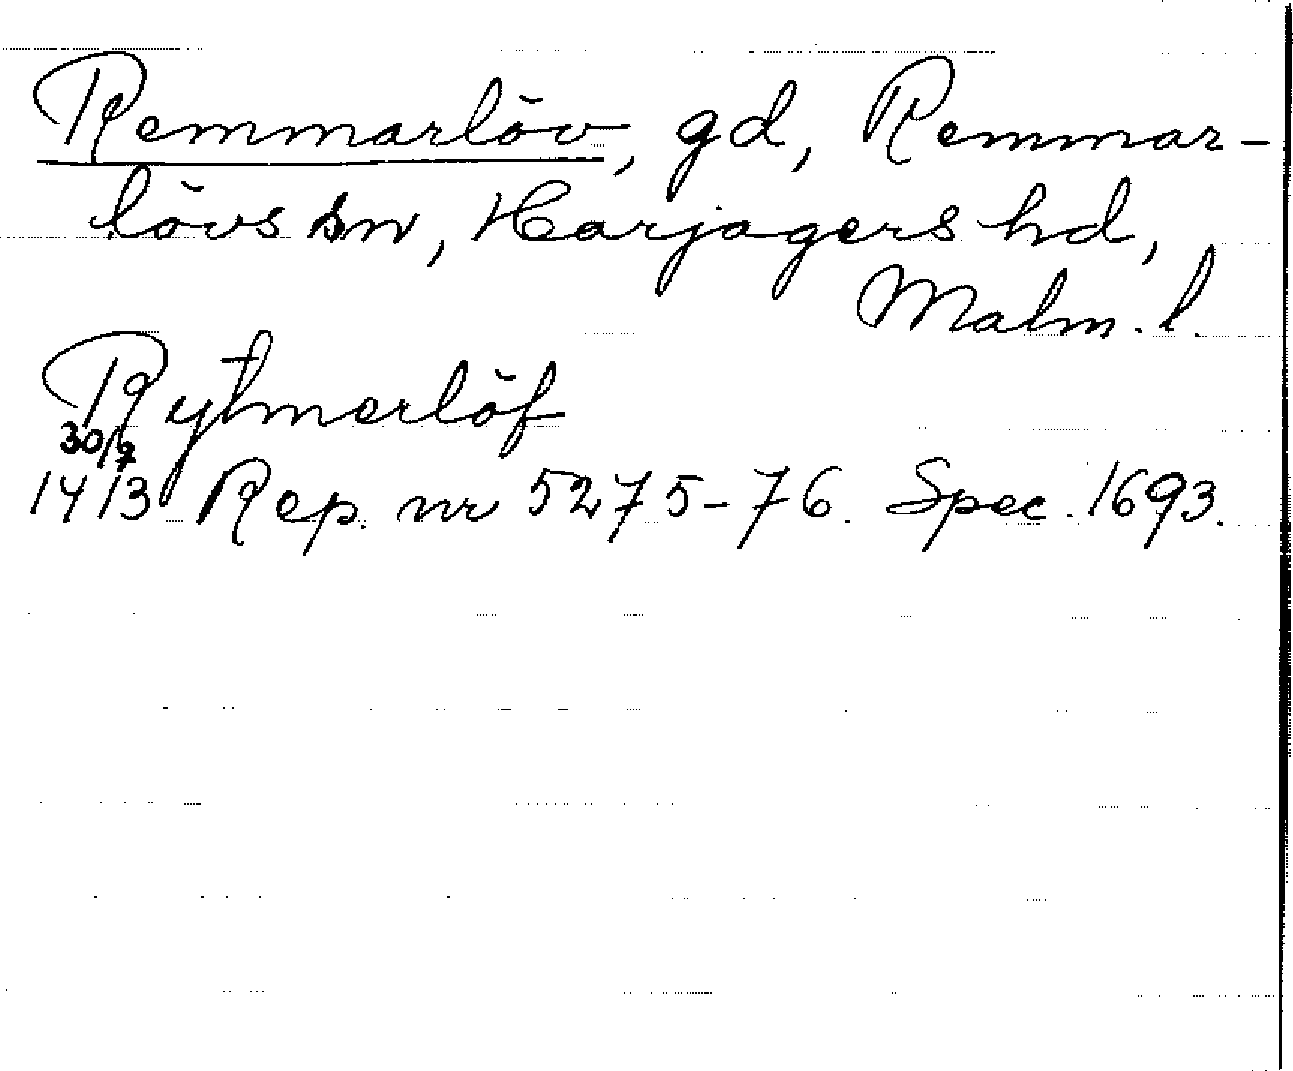 Remmarlöv, gd, Remmar-
lövs sn, Harjagers hd,
Malm. l.
Rytmerlöf
30/9
1413 Rep. nr 5275-76. Spec. 1693.